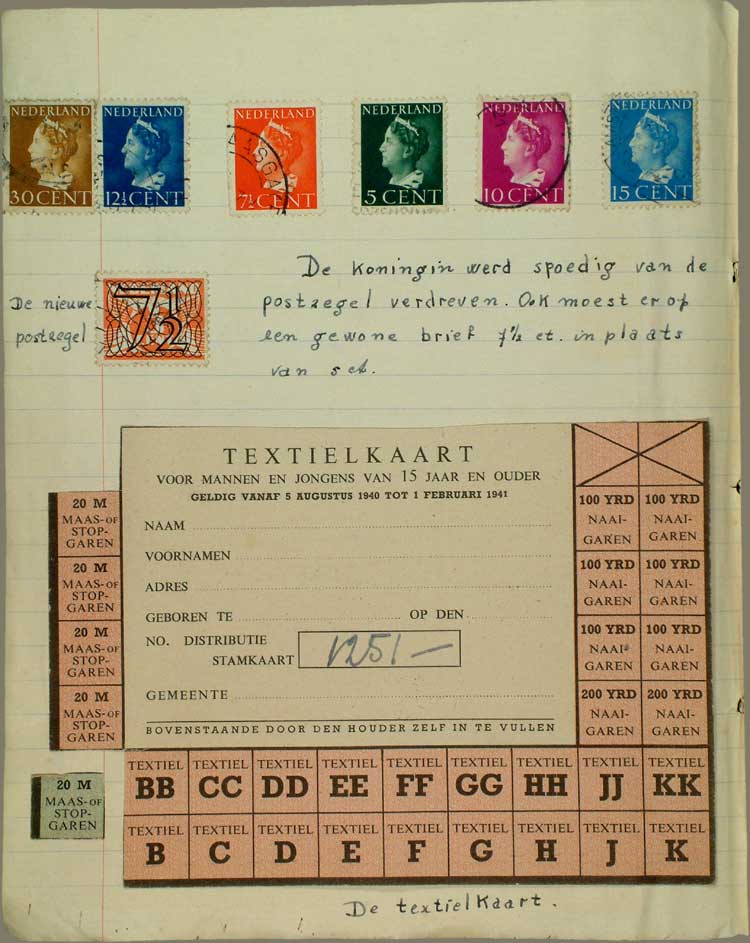 NEDERLAND
30 CENT
NEDERLAND
12½ CENT
NEDERLAND
7½ CENT
NEDERLAND
5 CENT
NEDERLAND
10 CENT
NEDERLAND
15 CENT
De nieuwe
postzegel
7½
De Koningin werd spoedig van de
postzegel verdreven. Ook moest er op
een gewone brief 7½ ct. in plaats
van 5 ct.
TEXTIELKAART
VOOR MANNEN EN JONGENS VAN 15 JAAR EN OUDER
GELDIG VANAF 5 AUGUSTUS 1940 TOT 1 FEBRUARI 1941
NAAM
VOORNAMEN
ADRES
GEBOREN TE OP DEN
NO. DISTRIBUTIE
STAMKAART 1251 —
GEMEENTE
BOVENSTAANDE DOOR DEN HOUDER ZELF IN TE VULLEN
20 M
MAAS- OF
STOP-
GAREN
20 M
MAAS- OF
STOP-
GAREN
20 M
MAAS- OF
STOP-
GAREN
20 M
MAAS- OF
STOP-
GAREN
20 M
MAAS- OF
STOP-
GAREN
100 YRD 100 YRD
NAAI- NAAI-
GAREN GAREN
100 YRD 100 YRD
NAAI- NAAI-
GAREN GAREN
100 YRD 100 YRD
NAAI- NAAI-
GAREN GAREN
200 YRD 200 YRD
NAAI- NAAI-
GAREN GAREN
TEXTIEL TEXTIEL TEXTIEL TEXTIEL TEXTIEL TEXTIEL TEXTIEL TEXTIEL TEXTIEL
BB CC DD EE FF GG HH JJ KK
TEXTIEL TEXTIEL TEXTIEL TEXTIEL TEXTIEL TEXTIEL TEXTIEL TEXTIEL TEXTIEL
B C D E F G H J K
De textielkaart.